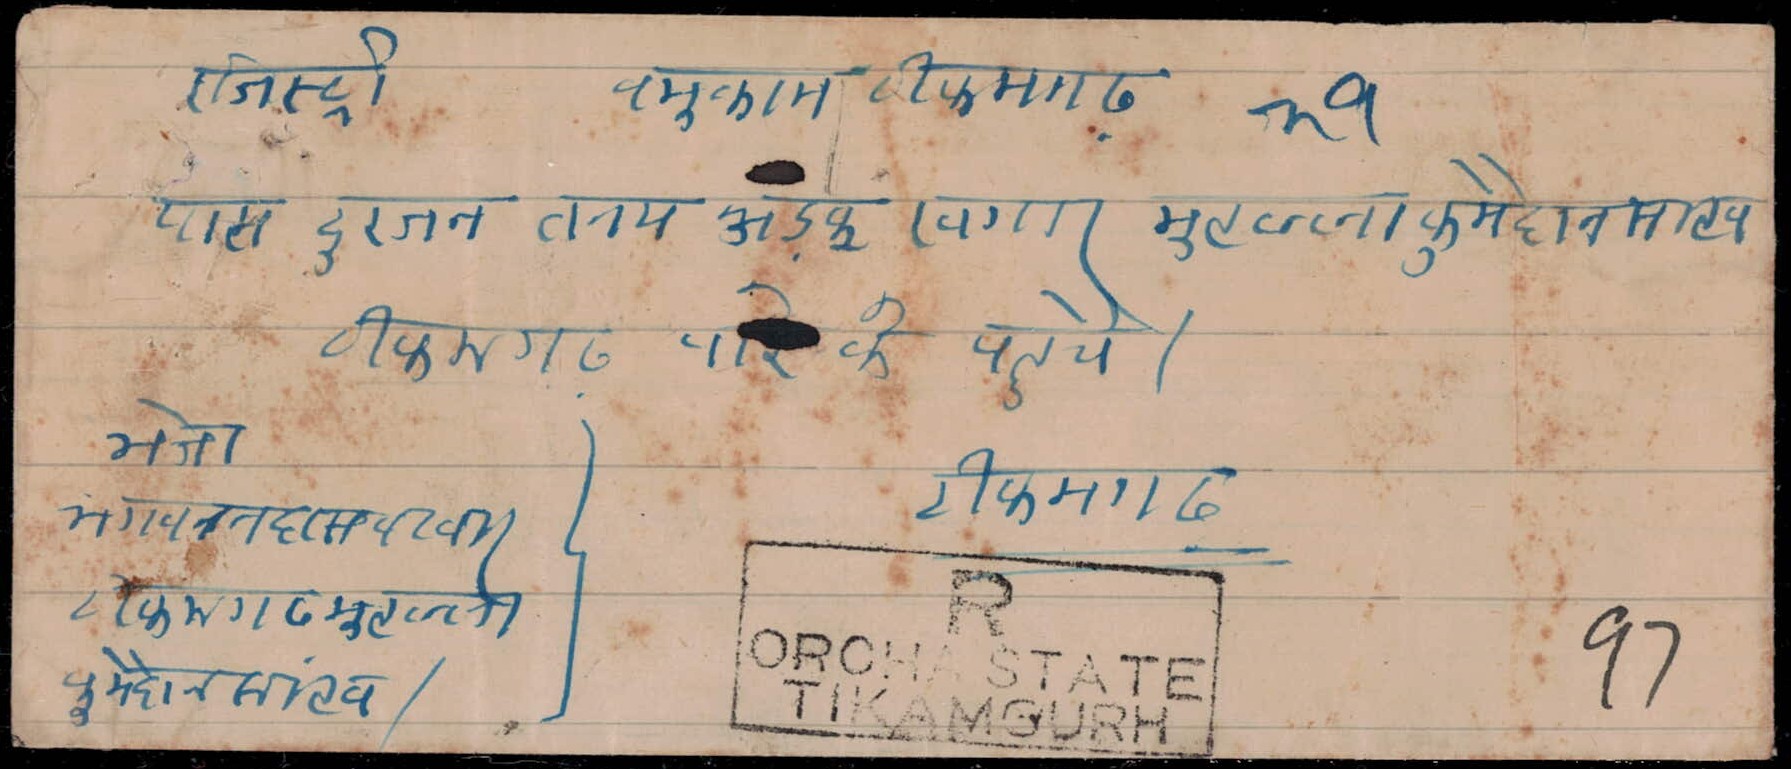 रजिस्ट्री वमुकाम टीकमगढ़ नं १
पास दुरजन तनय अड़कू खगार मुहल्ला कुमैदान साहब
टीकमगढ़ के पहुचे।
भेजा
भगवानदास
टीकमगढ मुहल्ला
कुमैदान साहब।
टीकमगढ
R
ORCHA STATE
TIKAMGURH
97